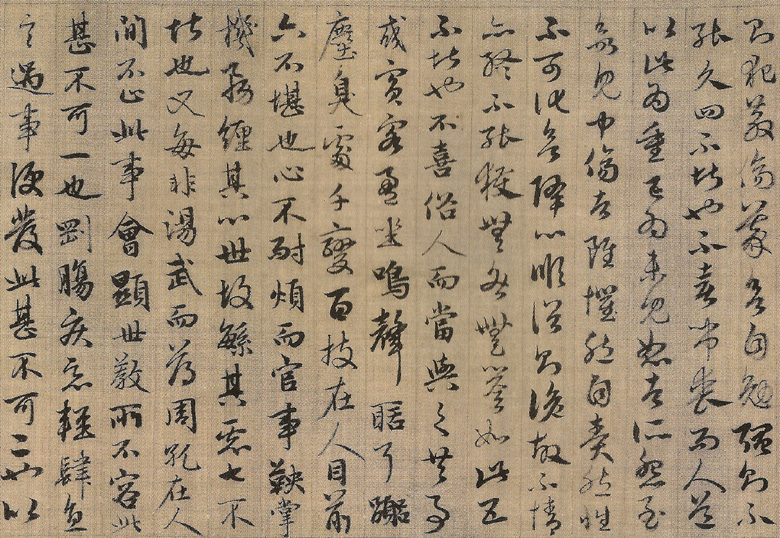 則犯教傷義欲自勉強則不
能久四不堪也不喜弔喪而人道
以此為重已為未見恕者所怨至
欲見中傷者雖懼然自責然性
不可化欲降心順俗則詭故不情
亦終不能獲無咎無譽如此五
不堪也不喜俗人而當與之共事
或賓客盈坐鳴聲聒耳囂
塵臭處千變百技在人目前
六不堪也心不耐煩而官事鞅掌
機務纏其心世故繁其慮七不
堪也又每非湯武而薄周孔在人
間不止此事會顯世教所不容此
甚不可一也剛腸疾惡輕肆直
言遇事便發此甚不可二也以